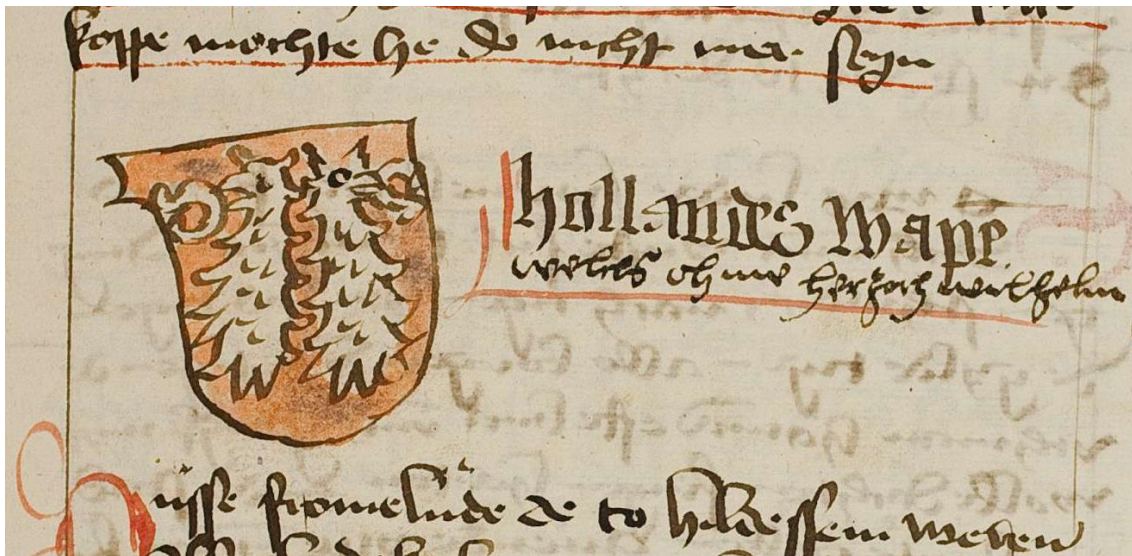 koppe mochte he do nicht mer seyn
hollandes wape
welches ohme herzoch wilhelm
Dusse fromelude de to hildessem weren